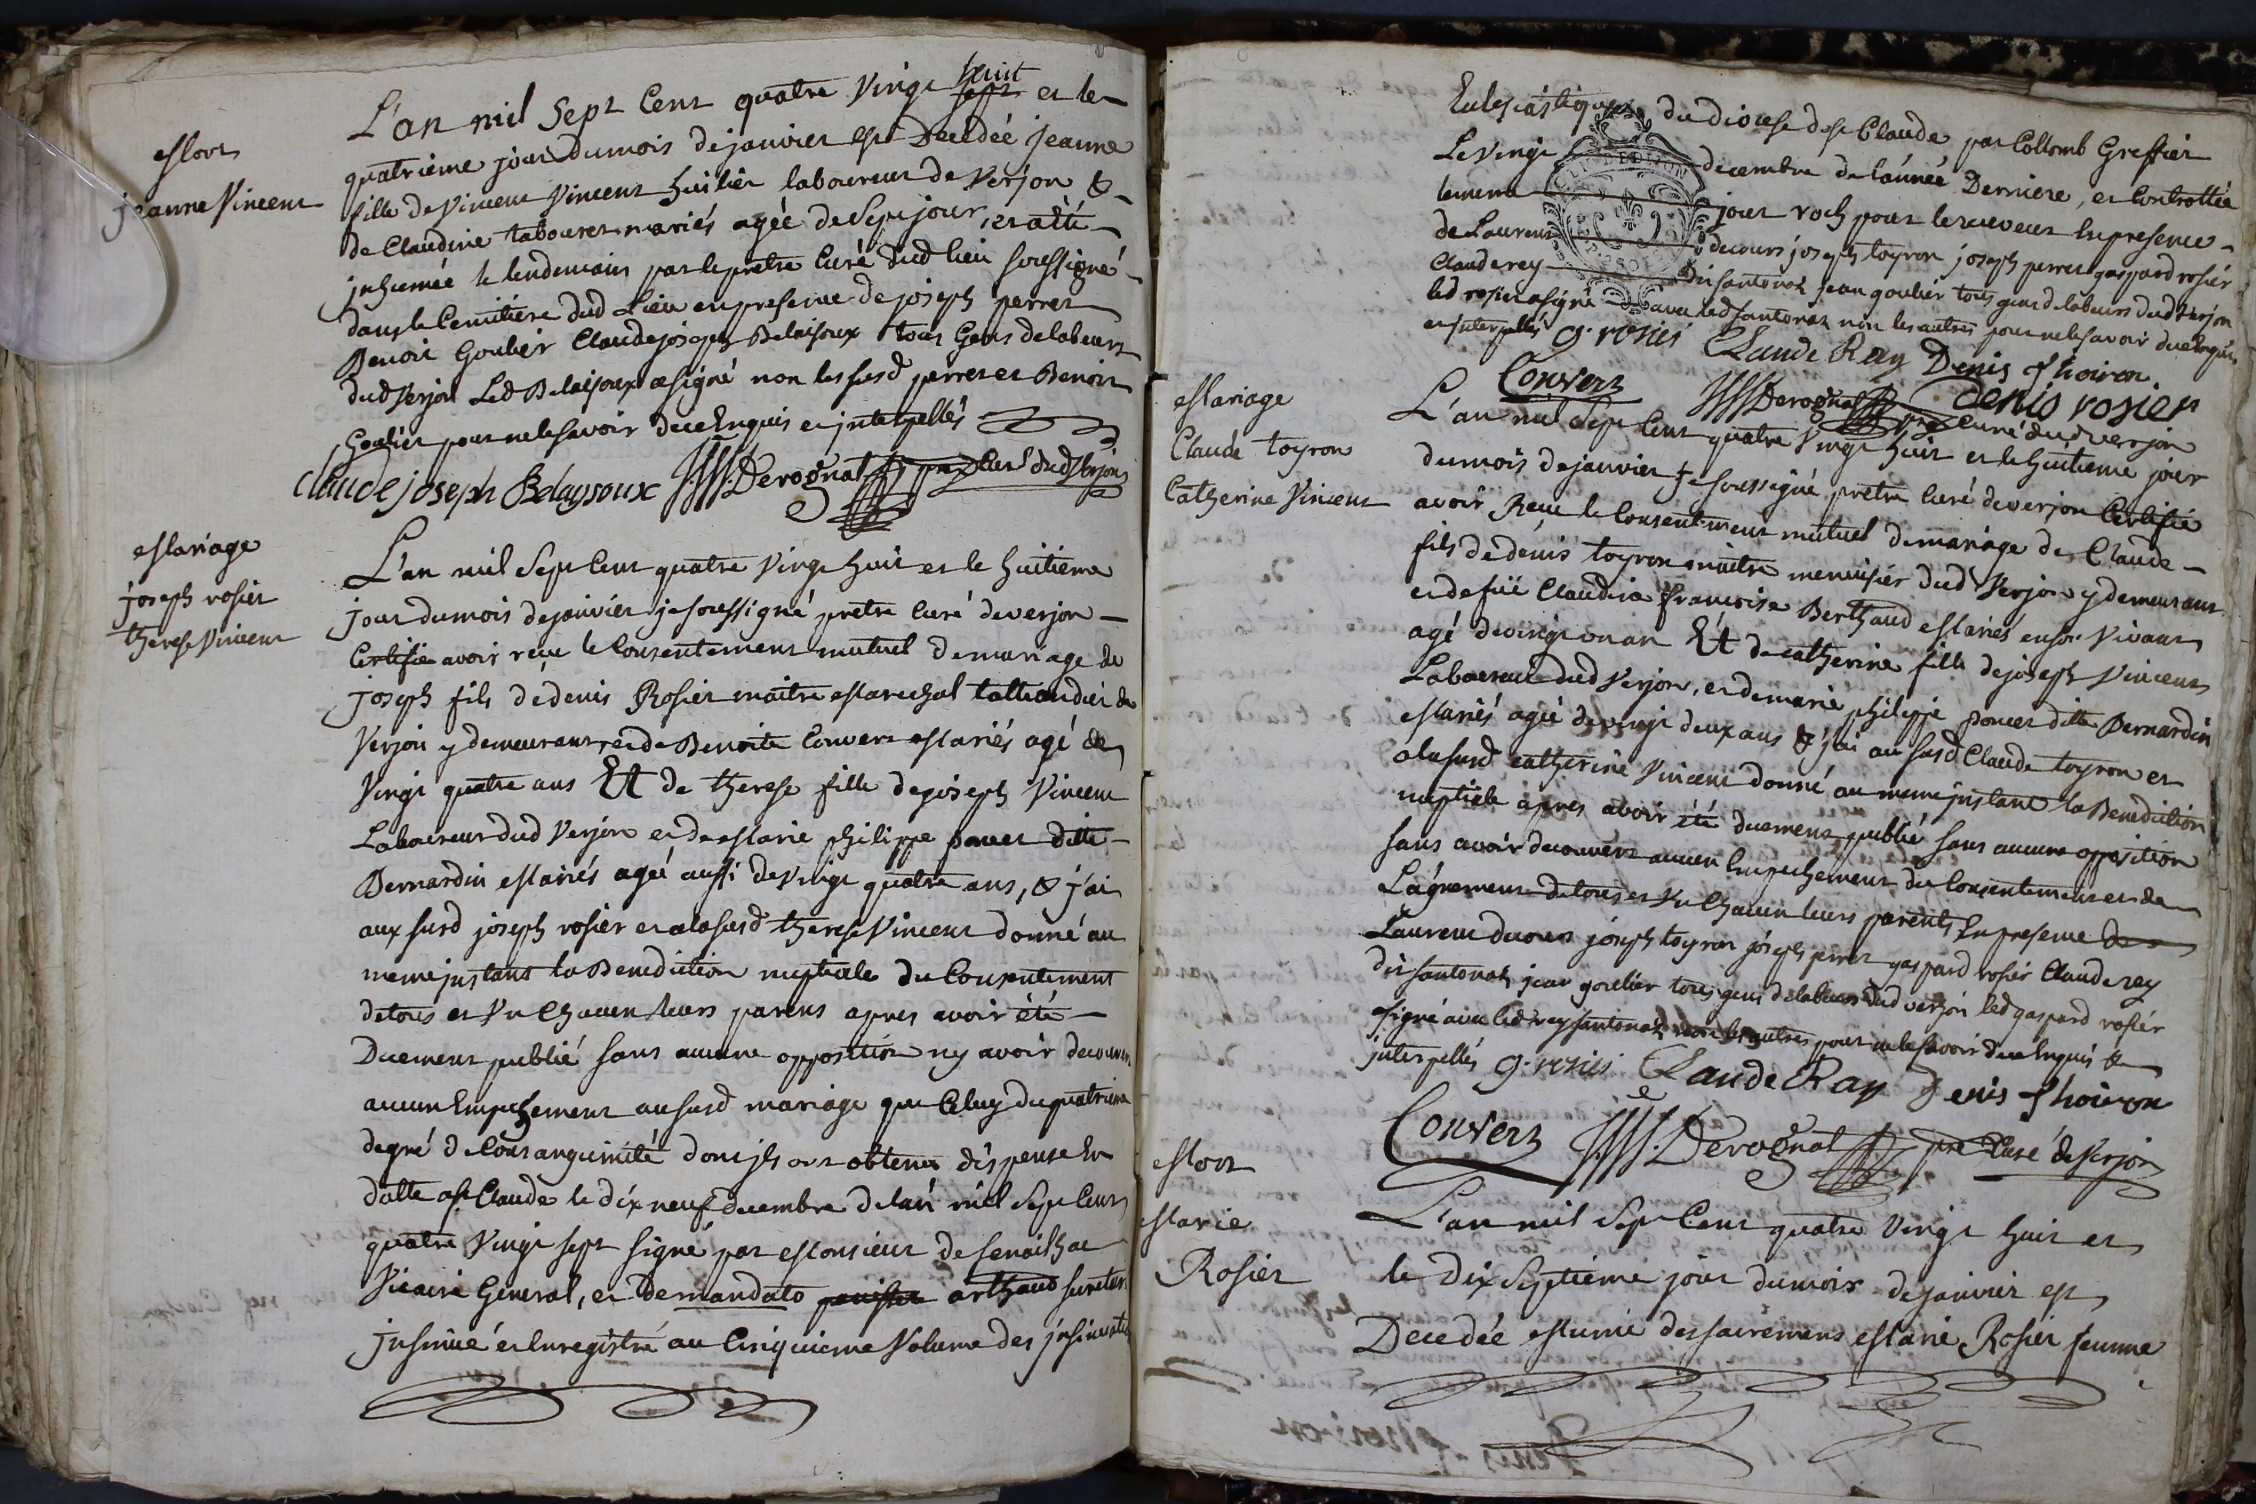 Mort
Jeanne Vincent
L'an mil Sept Cent quatre Vingt huit et le
quatrieme jour du mois de janvier est Decedée jeanne
fille de Vincent Vincent huilier laboureur de Verjon &
de Claudine tabouret mariés agée de Sept jour, et a été
jnhumée le lendemain par le pretre Curé dud lieu soussigné
dans le Cemitiére dud Lieu en presence de joseph perret
Benoit Goulier Claude joseph Belaisoux tous Gens de labeurs
dud Verjon Led Belaisoux a signé non les susd perret et Benoit
Goulier pour ne le savoir de ce Enquis et jnterpellés
claude joseph Belaysoux JJJJ. Derognat ptre Curé dud Verjon
Mariage
joseph rosier
therese Vincent
L'an mil Sept Cent quatre Vingt huit et le huitieme
jour du mois de janvier je soussigné pretre Curé de verjon
Certifie avoir reçu le Consentement mutuel de mariage de
joseph fils de denis Rosier maitre Marechal tallandier de
Verjon y demeurant, et de Benoite Convert Mariés agé de
Vingt quatre ans Et de therese fille de joseph Vincent
Laboureur dud Verjon et de Marie philippe poncet ditte
Bernardin Mariés agée aussi de Vingt quatre ans, & j'ai
aux susd joseph rosier et a la susd therese Vincent donné au
meme jnstant la Benediction nuptiale du Consentement
de tous et Vn Chacun leurs parens apres avoir été
Duement publié sans aucune opposition ny avoir decouvert
aucun Empechement au susd mariage que Celuy du quatrieme
degré de Consanguinité dont jls ont obtenu dispense En
datte a st Claude le dix neuf decembre de l'an mil Sept Cent
quatre Vingt sept signé par Monsieur de
Vicaire General, et de mandato arthaud secretere
jnsinué et Enregistré au Cinquieme Volume des jnsinuations
Eclesiastiques du diocese de st Claude par Collomb Greffier
Le Vingt decembre de l'année Derniere, et Controllée
le meme jour roch pour le receveur En presence
de Laurent decours joseph toyron joseph perret gaspard rosier
Claude rey jean goulier tous gens de labeurs dud Verjon
led rosier a signé avec led non les autres pour ne le savoir de ce Enquis
et jnterpellés g. rosier Claude Ray Denis Thoiron
Convert JJJJ Derognat ptre Curé dud verjon Denis rosier
Mariage
Claude toyron
Catherine Vincent
L'an mil Sept Cent quatre Vingt huit et le huitieme jour
du mois de janvier Je soussigné pretre Curé de verjon Certifie
avoir Reçu le Consentement mutuel de mariage de Claude
fils de denis toyron maitre menuisier dud Verjon y demeurant
et de fuë Claudine françoise Berthaud Mariés en son Vivant
agé de vingt un an Et de catherine fille de joseph Vincent
Laboureur dud Verjon, et de marie philippe poncet ditte Bernardin
Mariés agée de vingt deux ans & j'ai au susd Claude toyron et
a la susd catherine Vincent donné au meme jnstant la Benediction
nuptiale apres avoir été duement publié sans aucune opposition
sans avoir decouvert aucun Empechement du Consentement et de
L'agrement de tous et Vn Chacun leurs parents En presence de
Laurent decours joseph toyron joseph perret gaspard rosier Claude rey
jean goulier tous gens de labeurs dud verjon led gaspard rosier
a signé avec led rey non les autres pour ne le savoir de ce Enquis &
jnterpellés g. rosier Claude Ray Denis Thoiron
Convert JJJJ. Derognat ptre Curé de Verjon
Mort
Marie
Rosier
L'an mil Sept Cent quatre Vingt huit et
le Dix Septieme jour du mois de janvier est
Decedée Munie des sacremens Marie Rosier femme